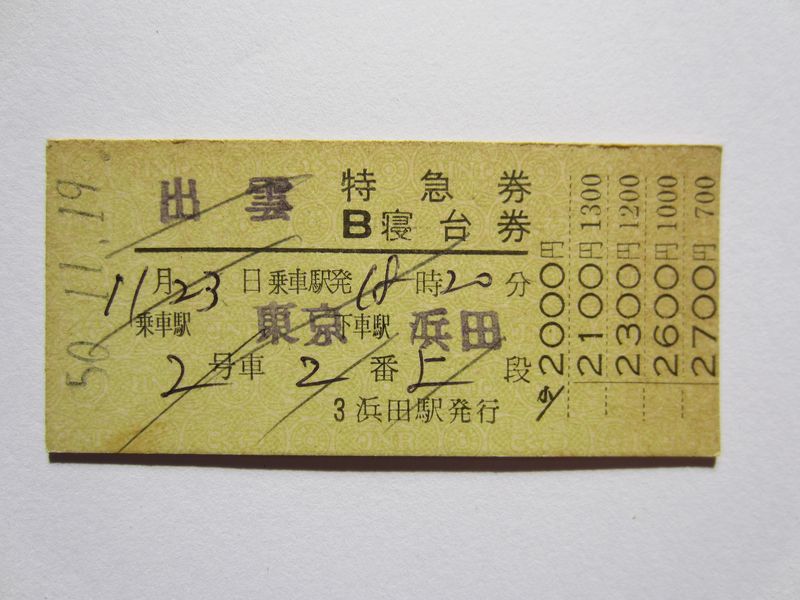 50.11.19
出雲 特急券
B寝台券
11月23日乗車駅発18時20分
乗車駅 東京 下車駅 浜田
2号車 2番 上段
3浜田駅発行
2000円
2100円 1300
2300円 1200
2600円 1000
2700円 700